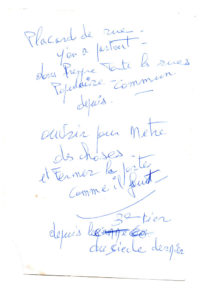 Placard de rue.
y'en a partout
dans Presque toute la rues
Populaire commun
depuis.
ouvrir pour Metre
des choses
et Fermer la porte
comme il faut
3e tier
depuis
du siecle dernier